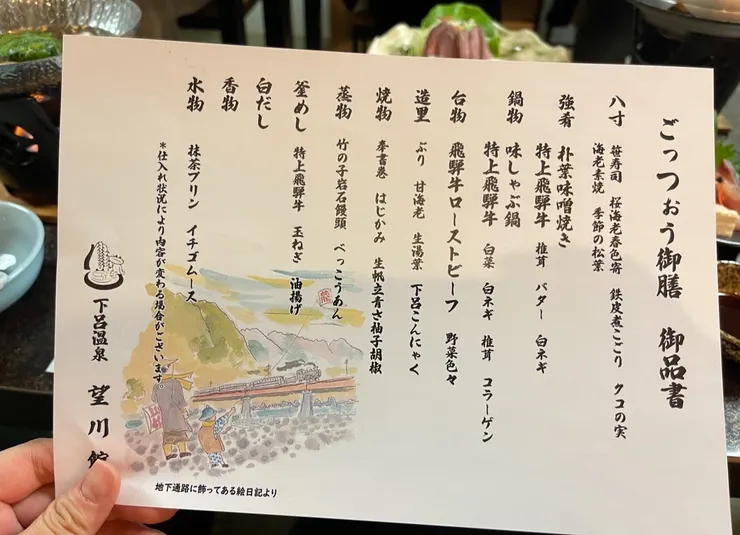 ごっつぉう御膳 御品書
八寸 笹寿司 桜海老春色寄 鉄皮煮こごり クコの実
海老素焼 季節の松葉
強肴 朴葉味噌焼き
特上飛騨牛 椎茸 バター 白ネギ
鍋物 味しゃぶ鍋
特上飛騨牛 白菜 白ネギ 椎茸 コラーゲン
台物 飛騨牛ローストビーフ 野菜色々
造里 ぶり 甘海老 生湯葉 下呂こんにゃく
焼物 奉書巻 はじかみ 生帆立青さ柚子胡椒
蒸物 竹の子岩石饅頭 べっこうあん
釜めし 特上飛騨牛 玉ねぎ 油揚げ
白だし
香物
水物 抹茶プリン イチゴムース
*仕入れ状況により内容が変わる場合がございます。
下呂温泉 望川館
地下通路に飾ってある絵日記より